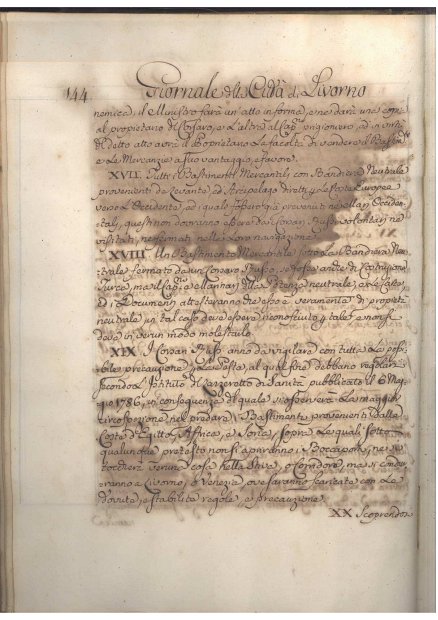 144 Giornale della Città di Livorno
nemica, il Ministro farà un' atto in forma, e ne darà una copia
al propietario del Corsaro, e l'altra al Cap.º prigioniero, ed in virtù
del detto atto avrà il Proprietario la facoltà di vendere il Bastim.to
e Le Mercanzie a suo vantaggio, e favore.
XVII. Tutti i Bastimenti Mercantili con Bandiera Neutrale
provenienti da Levante, ed Arcipelago diretti p la parte Europea
verso L'Occidente, ed i quali
tali, questi non dovranno essere da Corsari Russi volontari ne
visitati, ne fermati nella Loro navigazione.
XVIII. Un Bastimento Mercantile sotto La Bandiera Neu=
trale fermato da un Corsaro Russo, se fosse anche di Costruzione
Turca, ma il Cap.º e Marinari della Potenza neutrale, e Le Carte,
ed i Documenti attesteranno che esso è veramente di propietà
neutrale, in tal caso deve essere riconosciuto p tale, e non si
deve in verun modo molestarlo.
XIX. I Corsari Russi anno da vigilare con tutta La pos=
sibile precauzione p La Peste, al qual fine debbano regolarsi
secondo L' Lazzeretto di Sanità pubblicato il 6 Mag=
gio 1786, in conseguenza del quale si osserverà La maggior
circospezione nel predare i Bastimenti provenienti dalle
Coste d'Egitto, Affrica, e Soria, sopra Le quali sotto
qualunque pretesto non si apriranno i Boccaporti, ne si
toccherà veruna cosa nella Stiva, o Corridore, ma si
eranno a Livorno, o Venezia, ove saranno scaricate con Le
dovute, e stabilite regole, e precauzione.
XX Scoprendosi